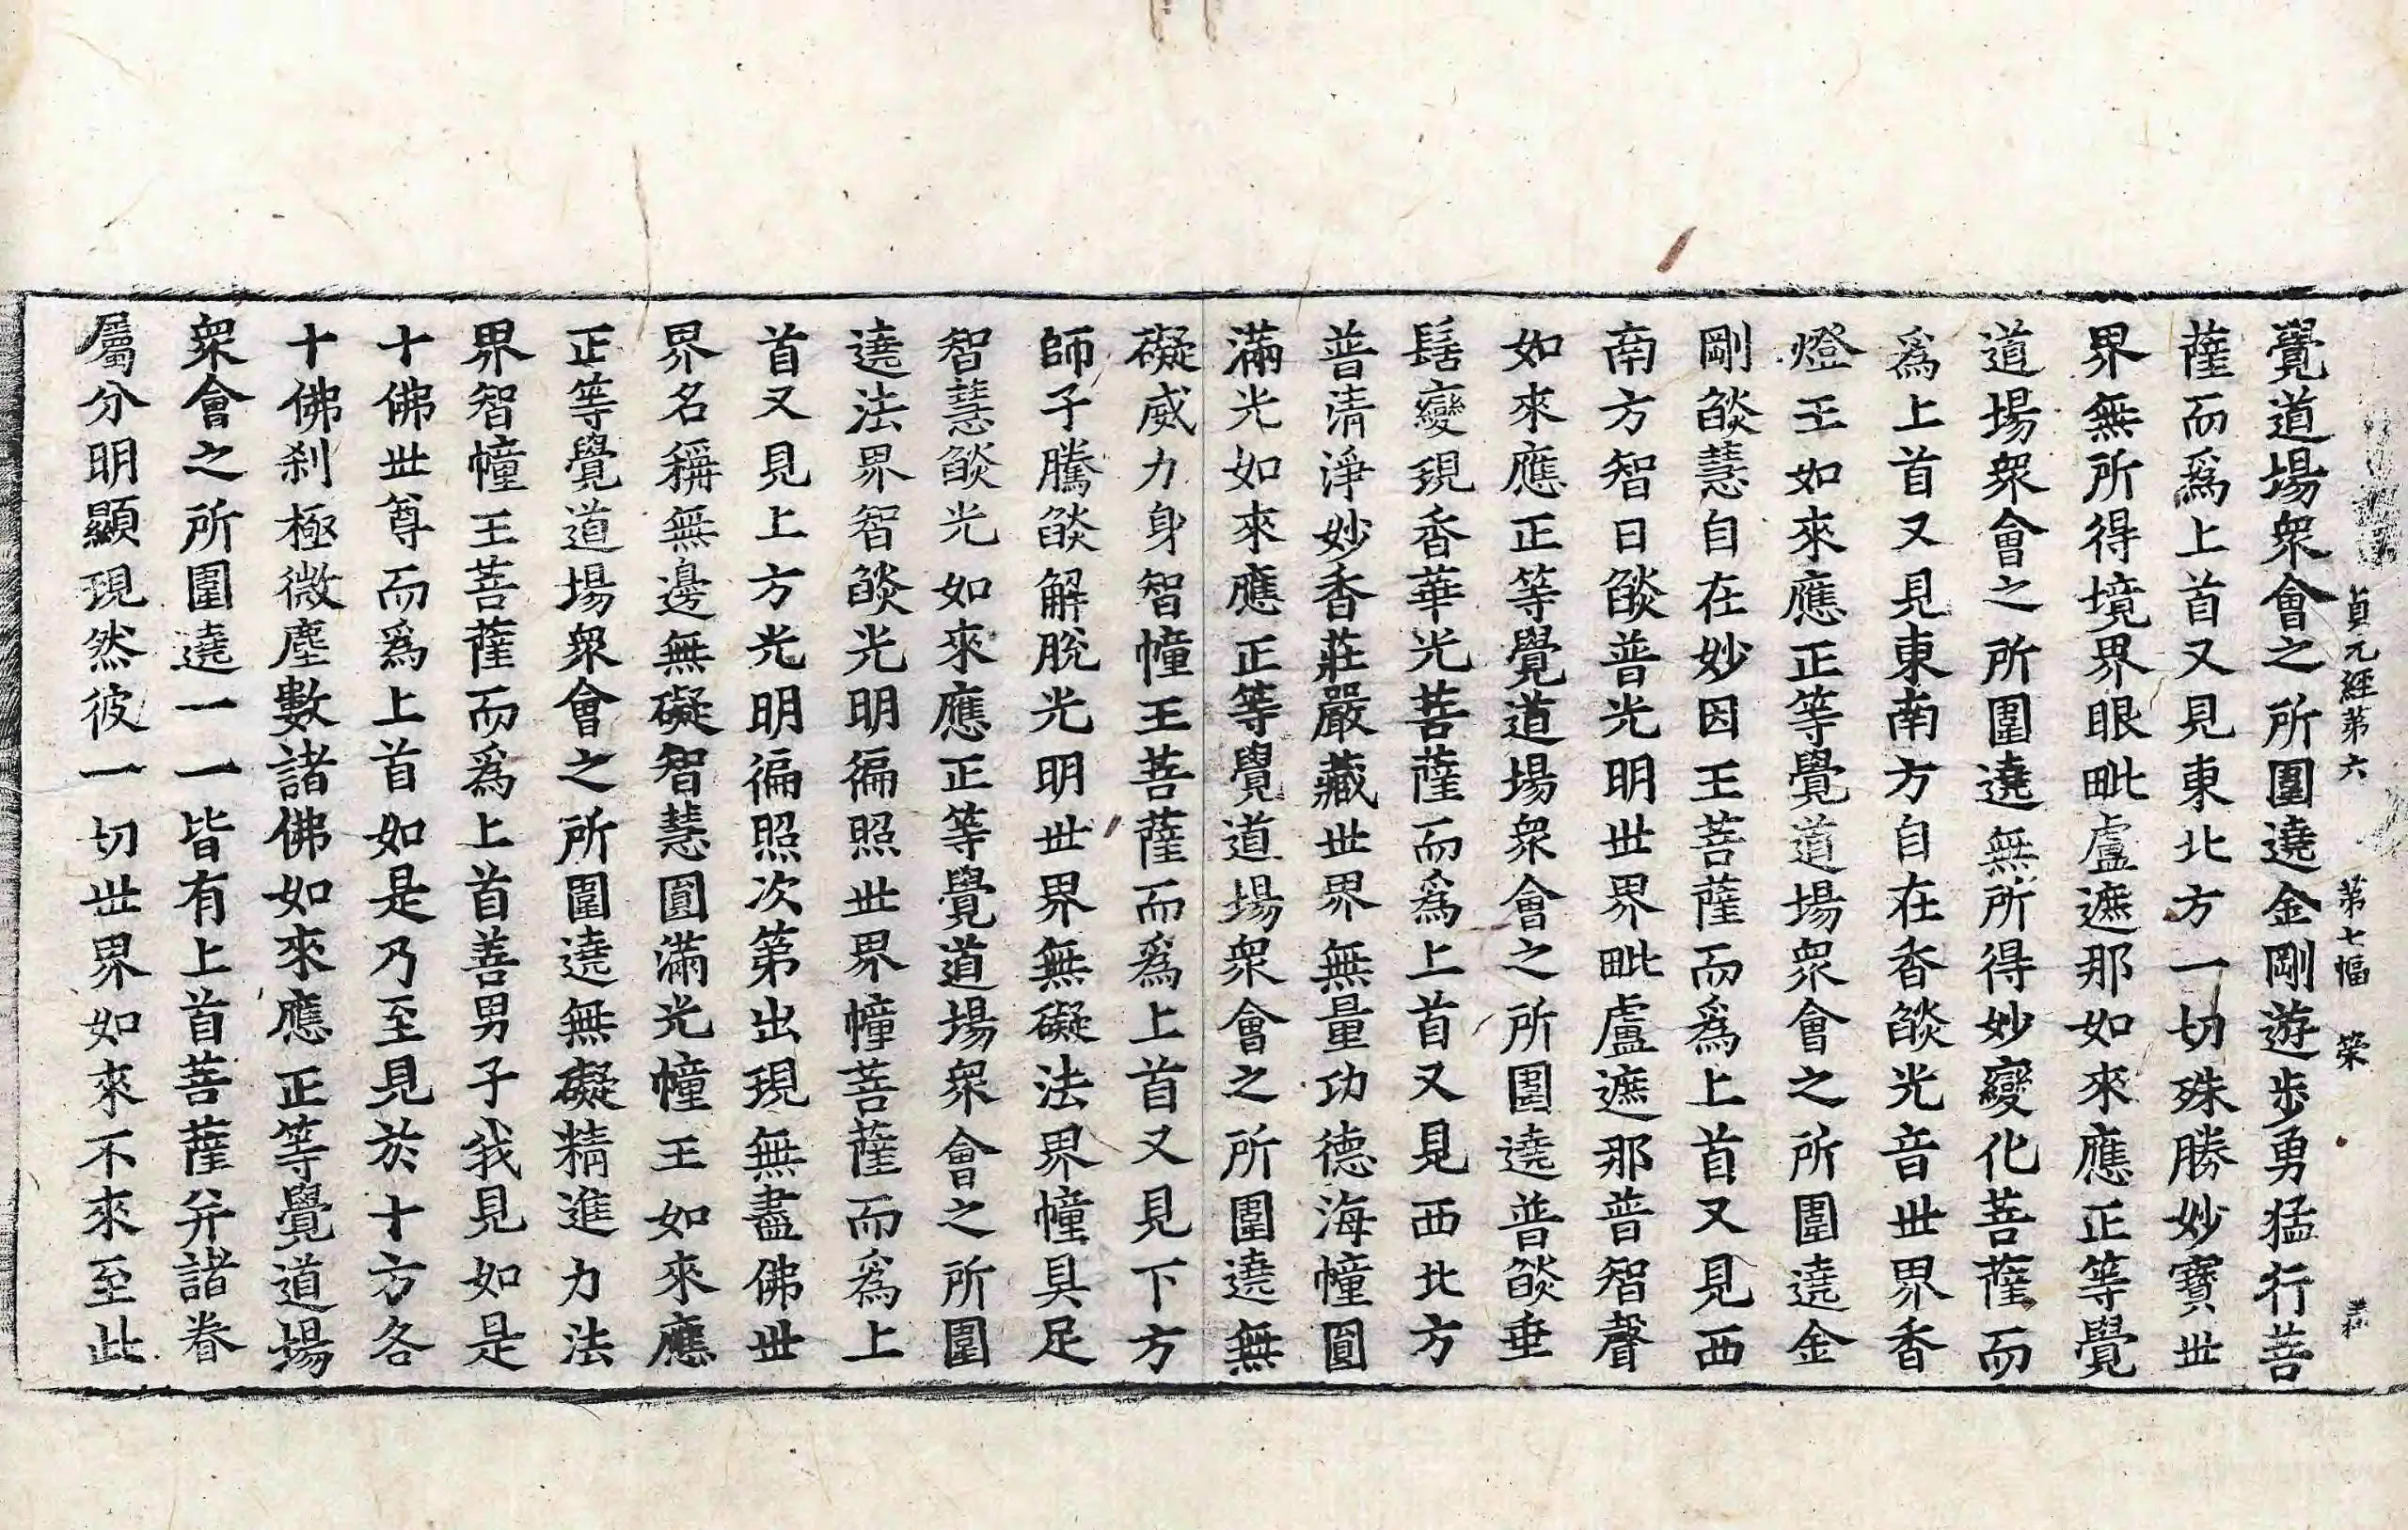 貞元經第六 第七幅 榮
覺道場衆會之所圍遶金剛遊步勇猛行菩
薩而爲上首又見東北方一切殊勝妙寶世
界無所得境界眼毗盧遮那如來應正等覺
道場衆會之所圍遶無所得妙變化菩薩而
爲上首又見東南方自在香燄光音世界香
燈王如來應正等覺道場衆會之所圍遶金
剛燄慧自在妙因王菩薩而爲上首又見西
南方智日燄普光明世界毗盧遮那普智聲
如來應正等覺道場衆會之所圍遶普燄垂
髻變現香華光菩薩而爲上首又見西北方
普清淨妙香莊嚴藏世界無量功德海幢圓
滿光如來應正等覺道場衆會之所圍遶無
礙威力身智幢王菩薩而爲上首又見下方
師子騰燄解脫光明世界無礙法界幢具足
智慧燄光如來應正等覺道場衆會之所圍
遶法界智燄光明徧照世界幢菩薩而爲上
首又見上方光明徧照次第出現無盡佛世
界名稱無邊無礙智慧圓滿光幢王如來應
正等覺道場衆會之所圍遶無礙精進力法
界智幢王菩薩而爲上首善男子我見如是
十佛世尊而爲上首如是乃至見於十方各
十佛刹極微塵數諸佛如來應正等覺道場
衆會之所圍遶一一皆有上首菩薩并諸眷
屬分明顯現然彼一切世界如來不來至此